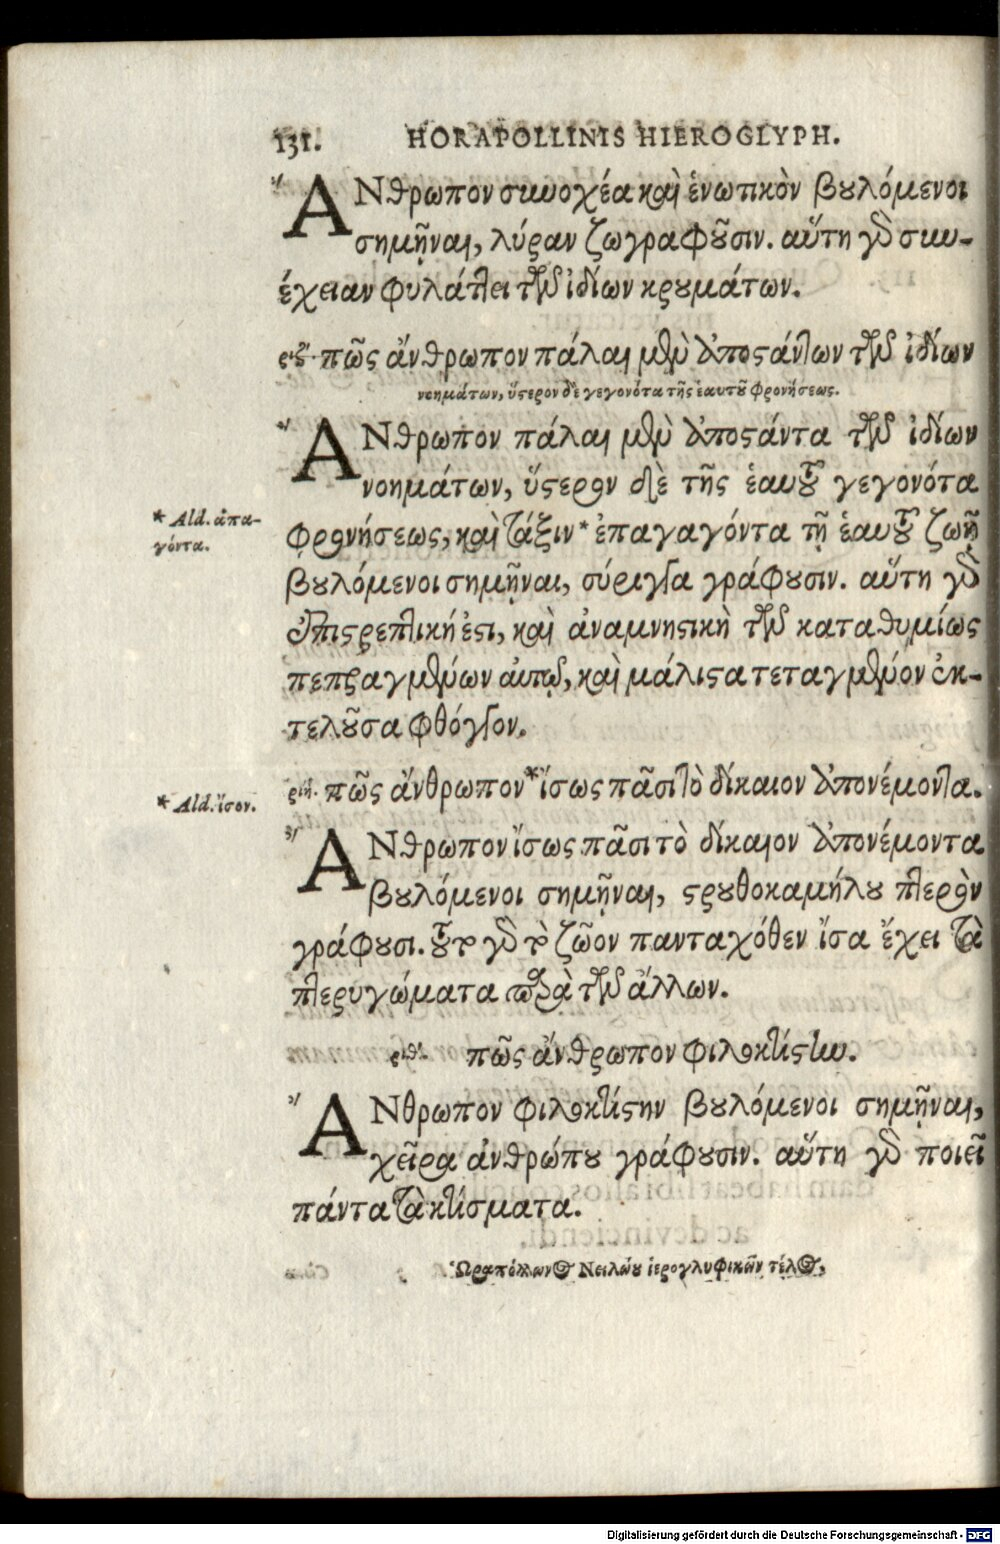 131. HORAPOLLINIS HIEROGLYPH.
ἌΝθρωπον συνοχέα καὶ ἑνωτικὸν βουλόμενοι
σημῆναι, λύραν ζωγραφοῦσιν. αὕτη γὰρ συν-
έχειαν φυλάττει τῶν ἰδίων κρουμάτων.
ριζ΄. πῶς ἄνθρωπον πάλαι μὲν ἀποστάντων τῶν ἰδίων
νοημάτων, ὕστερον δὲ γεγονότα τῆς ἑαυτοῦ φρονήσεως.
ἌΝθρωπον πάλαι μὲν ἀποστάντα τῶν ἰδίων
νοημάτων, ὕστερον δὲ τῆς ἑαυτοῦ γεγονότα
* Ald. ἀπα-
γόντα.
φρονήσεως, καὶ τάξιν * ἐπαγαγόντα τῇ ἑαυτοῦ ζωῇ
βουλόμενοι σημῆναι, σύριγγα γράφουσιν. αὕτη γὰρ
ἐπιστρεπτική ἐστι, καὶ ἀναμνηστικὴ τῶν καταθυμίως
πεπραγμένων αὐτῷ, καὶ μάλιστα τεταγμένον ἐκ-
τελοῦσα φθόγγον.
* Ald. ἴσον.
ριή. πῶς ἄνθρωπον * ἴσως πᾶσι τὸ δίκαιον ἀπονέμοντα.
ἌΝθρωπον ἴσως πᾶσι τὸ δίκαιον ἀπονέμοντα
βουλόμενοι σημῆναι, στρουθοκαμήλου πτερὸν
γράφουσι. τοῦτο γὰρ τὸ ζῶον πανταχόθεν ἴσα ἔχει τὰ
πτερυγώματα παρὰ τῶν ἄλλων.
ριθ΄. πῶς ἄνθρωπον φιλοκτίστην.
ἌΝθρωπον φιλοκτίστην βουλόμενοι σημῆναι,
χεῖρα ἀνθρώπου γράφουσιν. αὕτη γὰρ ποιεῖ
πάντα τὰ κτίσματα.
Ὡραπόλλωνος Νειλώου ἱερογλυφικῶν τέλος,
Digitalisierung gefördert durch die Deutsche Forschungsgemeinschaft - DFG